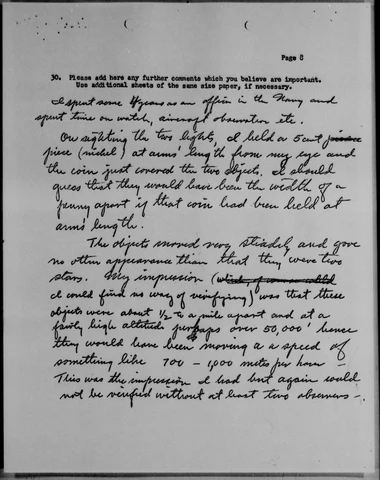 Page 8
30. Please add here any further comments which you believe are important.
Use additional sheets of the same size paper, if necessary.
I spent some 4 years as an officer in the Navy and
spent time on watch, aircraft observation etc.
On sighting the two lights, I held a 5 cent
piece (nickel) at arms' length from my eye and
the coin just covered the two objects. I should
guess that they would have been the width of a
penny apart if that coin had been held at
arms' length.
The objects moved very steadily and gave
no other appearance than that they were two
stars. My impression (which, of course
I could find no way of verifying) was that these
objects were about 1/2 to a mile apart and at a
fairly high altitude perhaps over 50,000' hence
they would have been moving a a speed of
something like 700 - 1,000 miles per hour -
This was the impression I had but again could
not be verified without at least two observers -